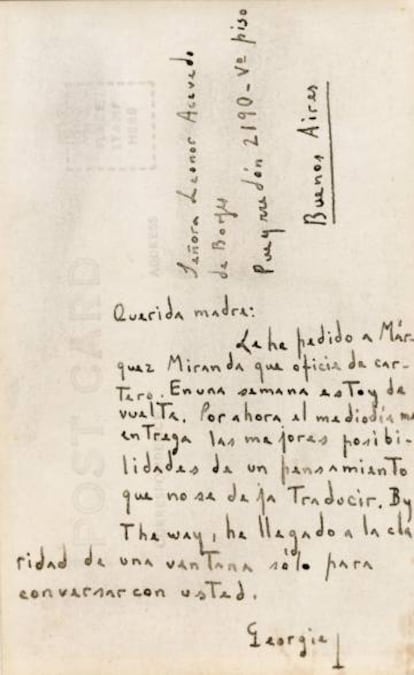 Señora Leonor Acevedo
de Borges
Pueyrredón 2190 - Vº piso
Buenos Aires
Querida madre:
Le he pedido a Már-
quez Miranda que oficie de car-
tero. En una semana estoy de
vuelta. Por ahora el mediodía me
entrega las mejores posibi-
lidades de un pensamiento
que no se deja traducir. By
The way, he llegado a la cla
ridad de una ventana sólo para
conversar con usted.
Georgie
POST CARD
ADDRESS
PLACE
STAMP
HERE